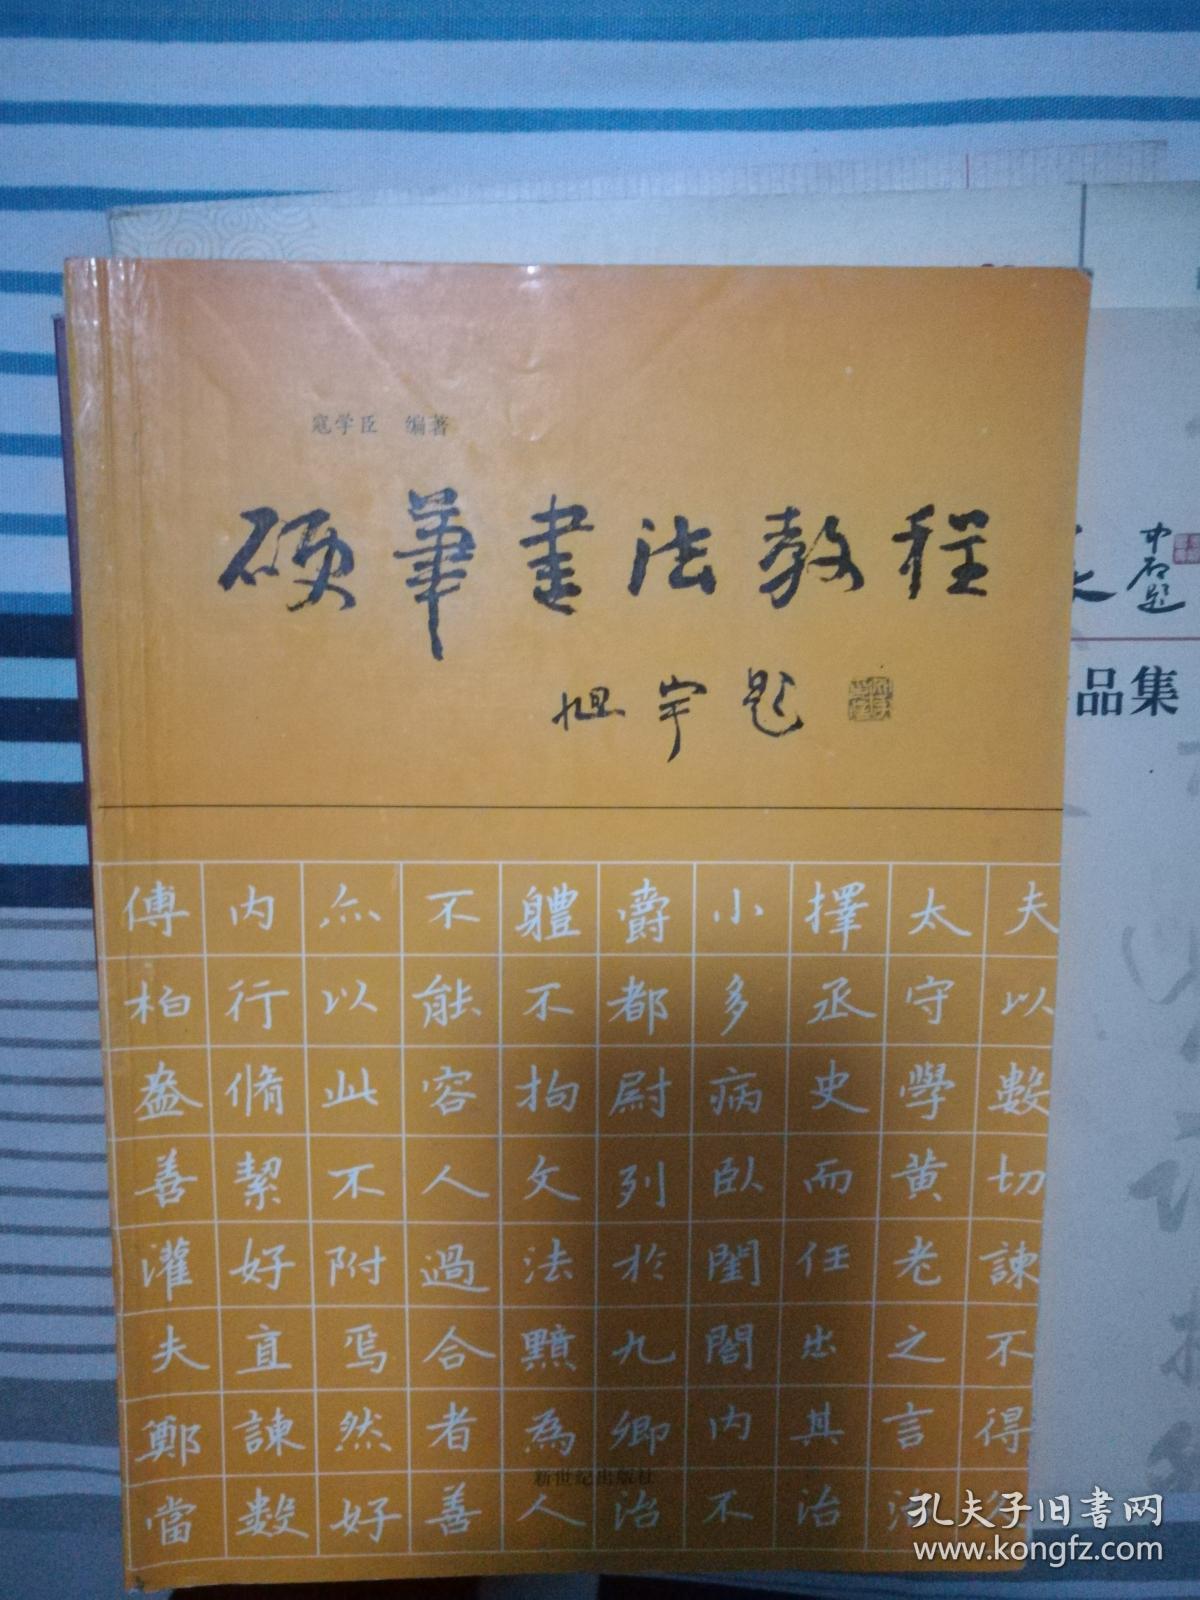 寇学臣 编著
硬筆書法教程
旭宇题
夫以數切諫不得
太守學黄老之言治
擇丞史而任出其治
小多病臥閨閤内不
爵都尉列於九卿治
體不拘文法黯為人
不能容人過合者善
亦以此不附焉然好
内行脩絜好直諫數
傅柏盎善灌夫鄭當
新世纪出版社
题
品集
孔夫子旧书网
www.kongfz.com